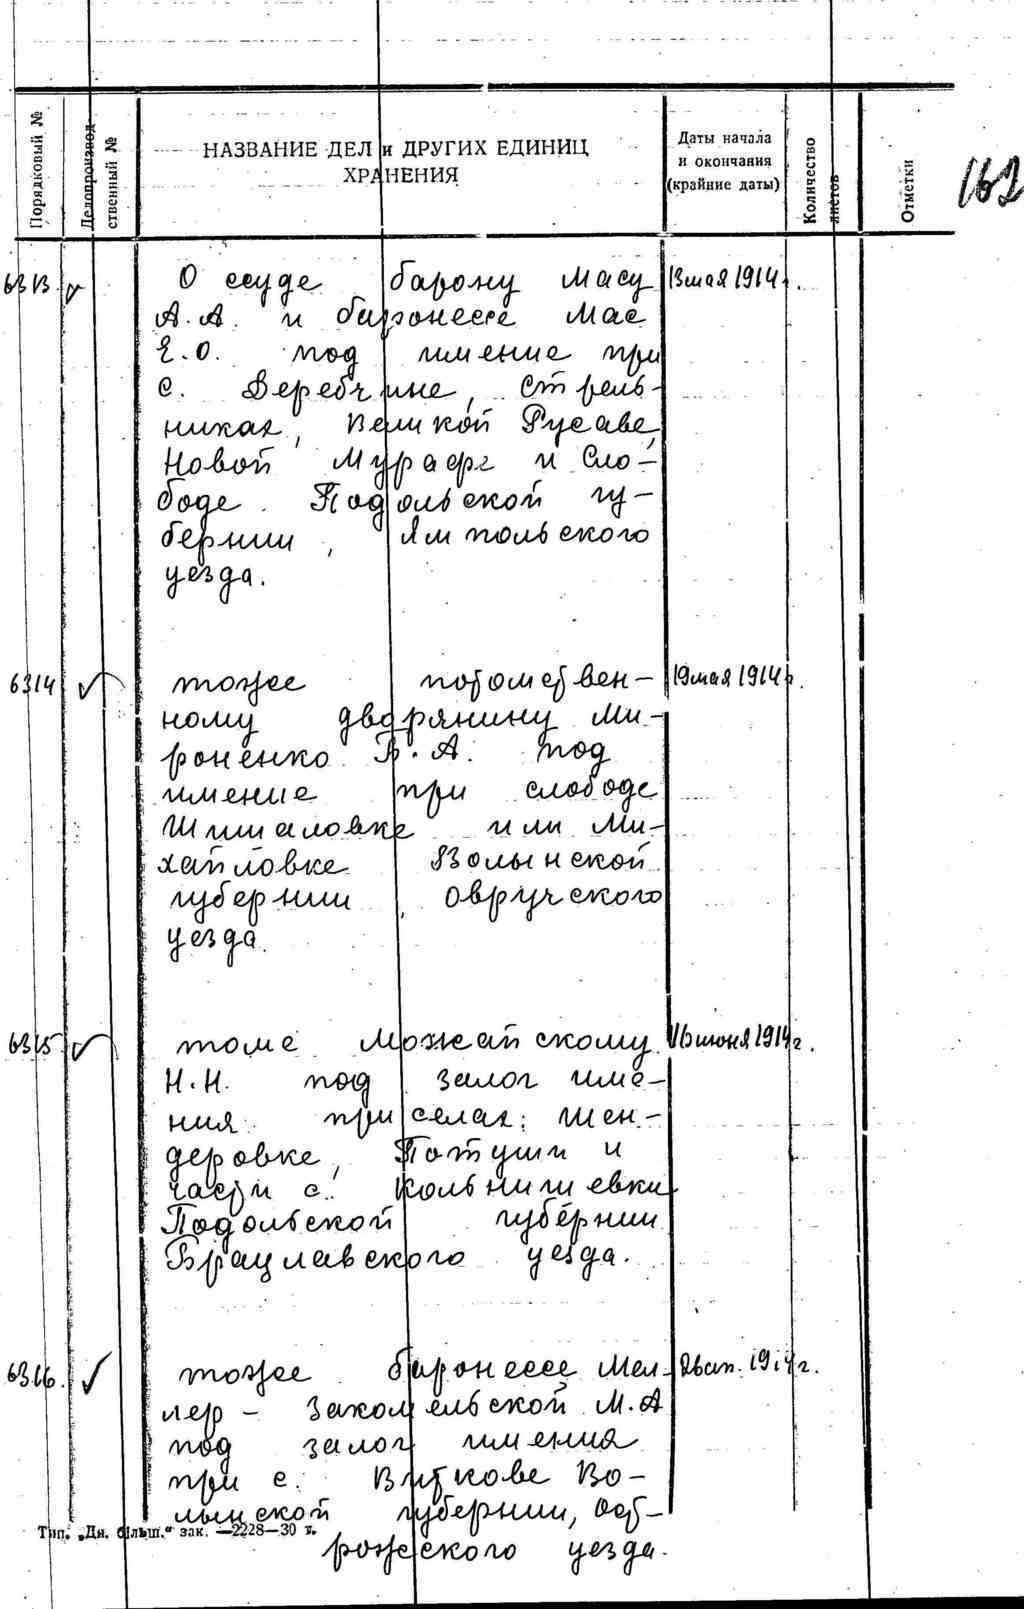 Порядковый №
Делопроизвод-
ственный №
НАЗВАНИЕ ДЕЛ и ДРУГИХ ЕДИНИЦ
ХРАНЕНИЯ
Даты начала
и окончания
(крайние даты)
Количество
листов
Отметки
162
6313. О ссуде барону Масу 13 мая 1914 г.
А.А. и баронессе Мас
Е.О. под имение при
с. Деребчине, Стрель-
никах, Великой Русаве,
Новой Мурафе и Сло-
боде Подольской гу-
бернии, Ямпольского
уезда.
6314 тоже потомствен- 19 мая 1914 г.
ному дворянину Ми-
роненко В.А. под
имение при слободе
или Ми-
хайловке Волынской
губернии, Овручского
уезда.
6315. тоже Можайскому 16 июня 1914 г.
Н.Н. под залог име-
ния при селах: Шен-
деровке, Потуши и
части с.
Подольской губернии
Брацлавского уезда.
6316. тоже баронессе Мел- 1914 г.
лер - Закомельской М.А
под залог имения
при с. Виткове Во-
лынской губернии, Ост-
рожского уезда.
Тип. „Дн. більш.“ зак. —2228—30 т.